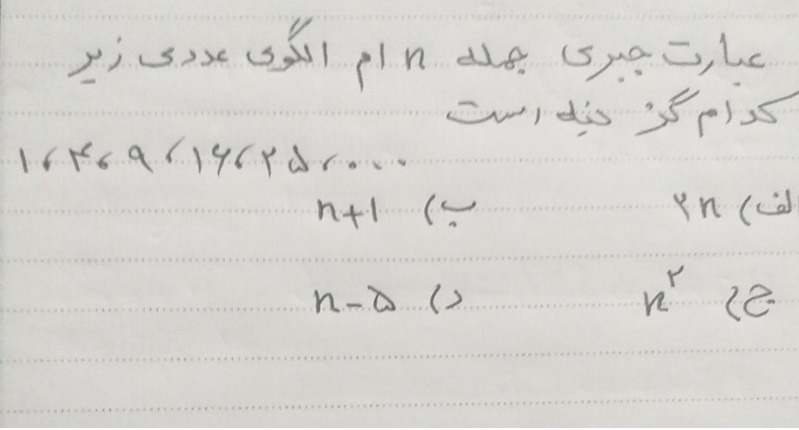 عبارت جبری جمله n ام الگوی عددی زیر
کدام گزینه است
۱، ۴، ۹، ۱۶، ۲۵، ...
الف) ۲n ب) n+۱
ج) n^۲ د) n-۵